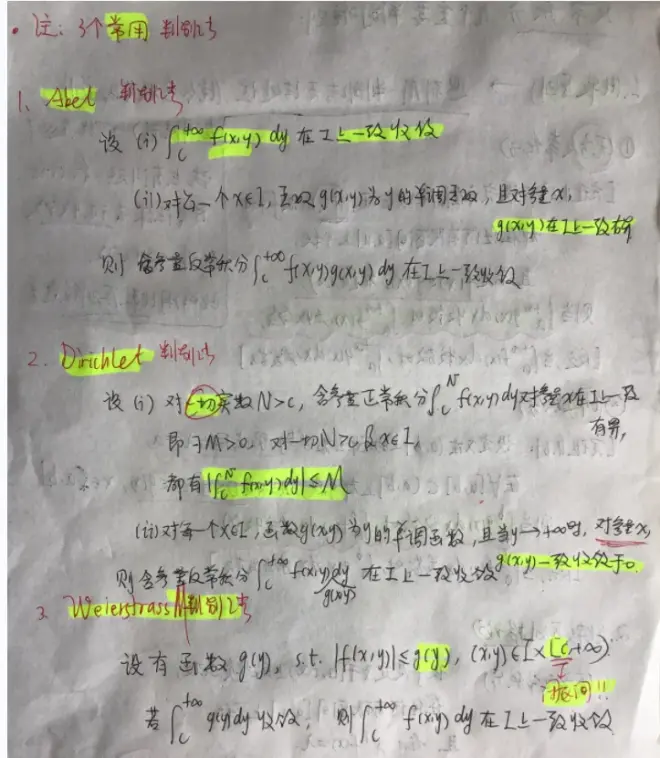 • 注：3个常用判别法
1、Abel 判别法
设 (i) ∫_c^{+∞} f(x,y) dy 在 I 上一致收敛
(ii) 对每一个 x∈I，函数 g(x,y) 为 y 的单调函数，且对参量 x，
g(x,y) 在 I 上一致有界
则 含参量反常积分 ∫_c^{+∞} f(x,y)g(x,y) dy 在 I 上一致收敛
2、Dirichlet 判别法
设 (i) 对一切实数 N>c，含参量正常积分 ∫_c^N f(x,y) dy 对参量 x 在 I 上一致
有界，
即 ∃M>0，对一切 N>c 及 x∈I，
都有 |∫_c^N f(x,y) dy| ≤ M
(ii) 对每一个 x∈I，函数 g(x,y) 为 y 的单调函数，且当 y→+∞ 时，对参量 x，
g(x,y) 一致收敛于 0.
则含参量反常积分 ∫_c^{+∞} f(x,y) dy 在 I 上一致收敛
g(x,y)
3、Weierstrass 判别法
设有函数 g(y)，s.t. |f(x,y)| ≤ g(y)，(x,y)∈I×[c,+∞)
若 ∫_c^{+∞} g(y) dy 收敛，则 ∫_c^{+∞} f(x,y) dy 在 I 上一致收敛